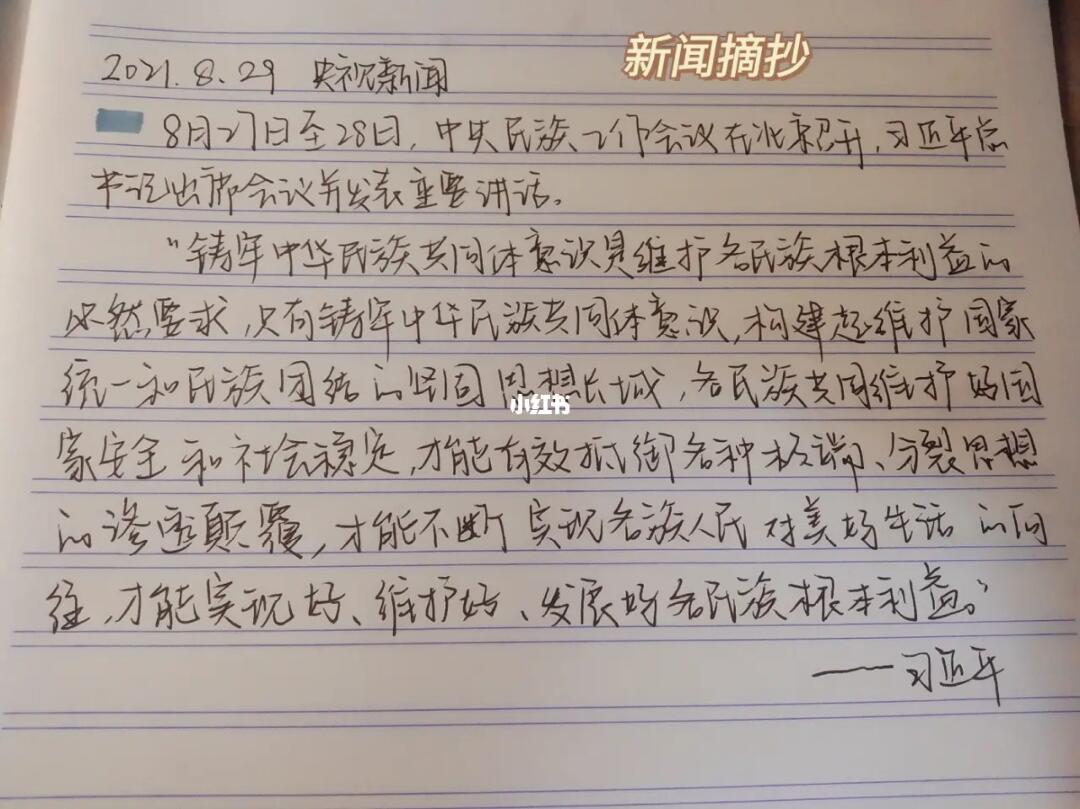 新闻摘抄
2021.8.29 央视新闻
8月27日至28日，中央民族工作会议在北京召开，习近平总
书记出席会议并发表重要讲话。
“铸牢中华民族共同体意识是维护各民族根本利益的
必然要求，只有铸牢中华民族共同体意识，构建起维护国家
统一和民族团结的坚固思想长城，各民族共同维护好国
家安全和社会稳定，才能有效抵御各种极端、分裂思想
的渗透颠覆，才能不断实现各族人民对美好生活的向
往，才能实现好、维护好、发展好各民族根本利益。”
——习近平
小红书